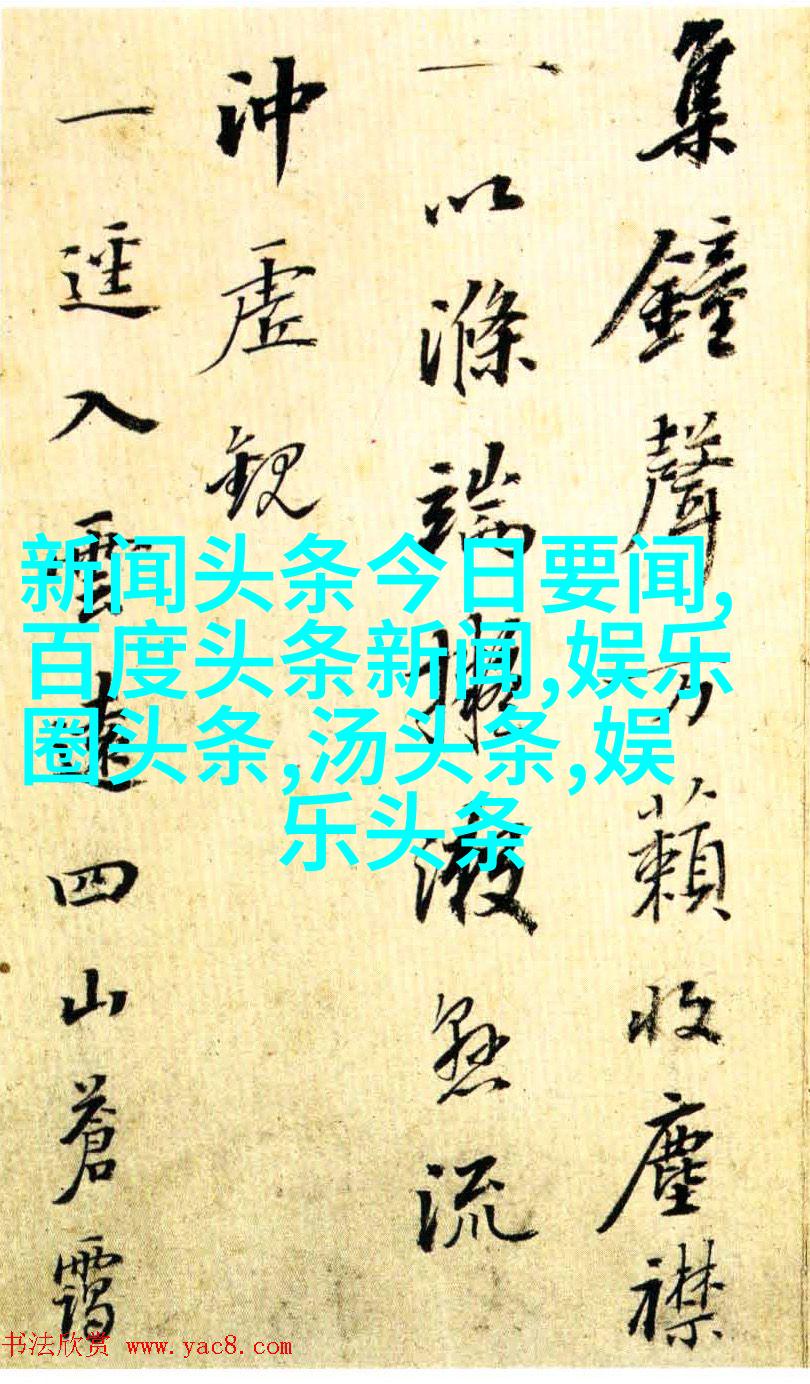 集鐘聲万籟收塵襟
一以滌端擬懸流
沖虛觀
一逕入雲遠四山蒼靄
新闻头条今日要闻,
百度头条新闻,娱乐
圈头条,汤头条,娱
乐头条
书法欣赏 www.yac8.com